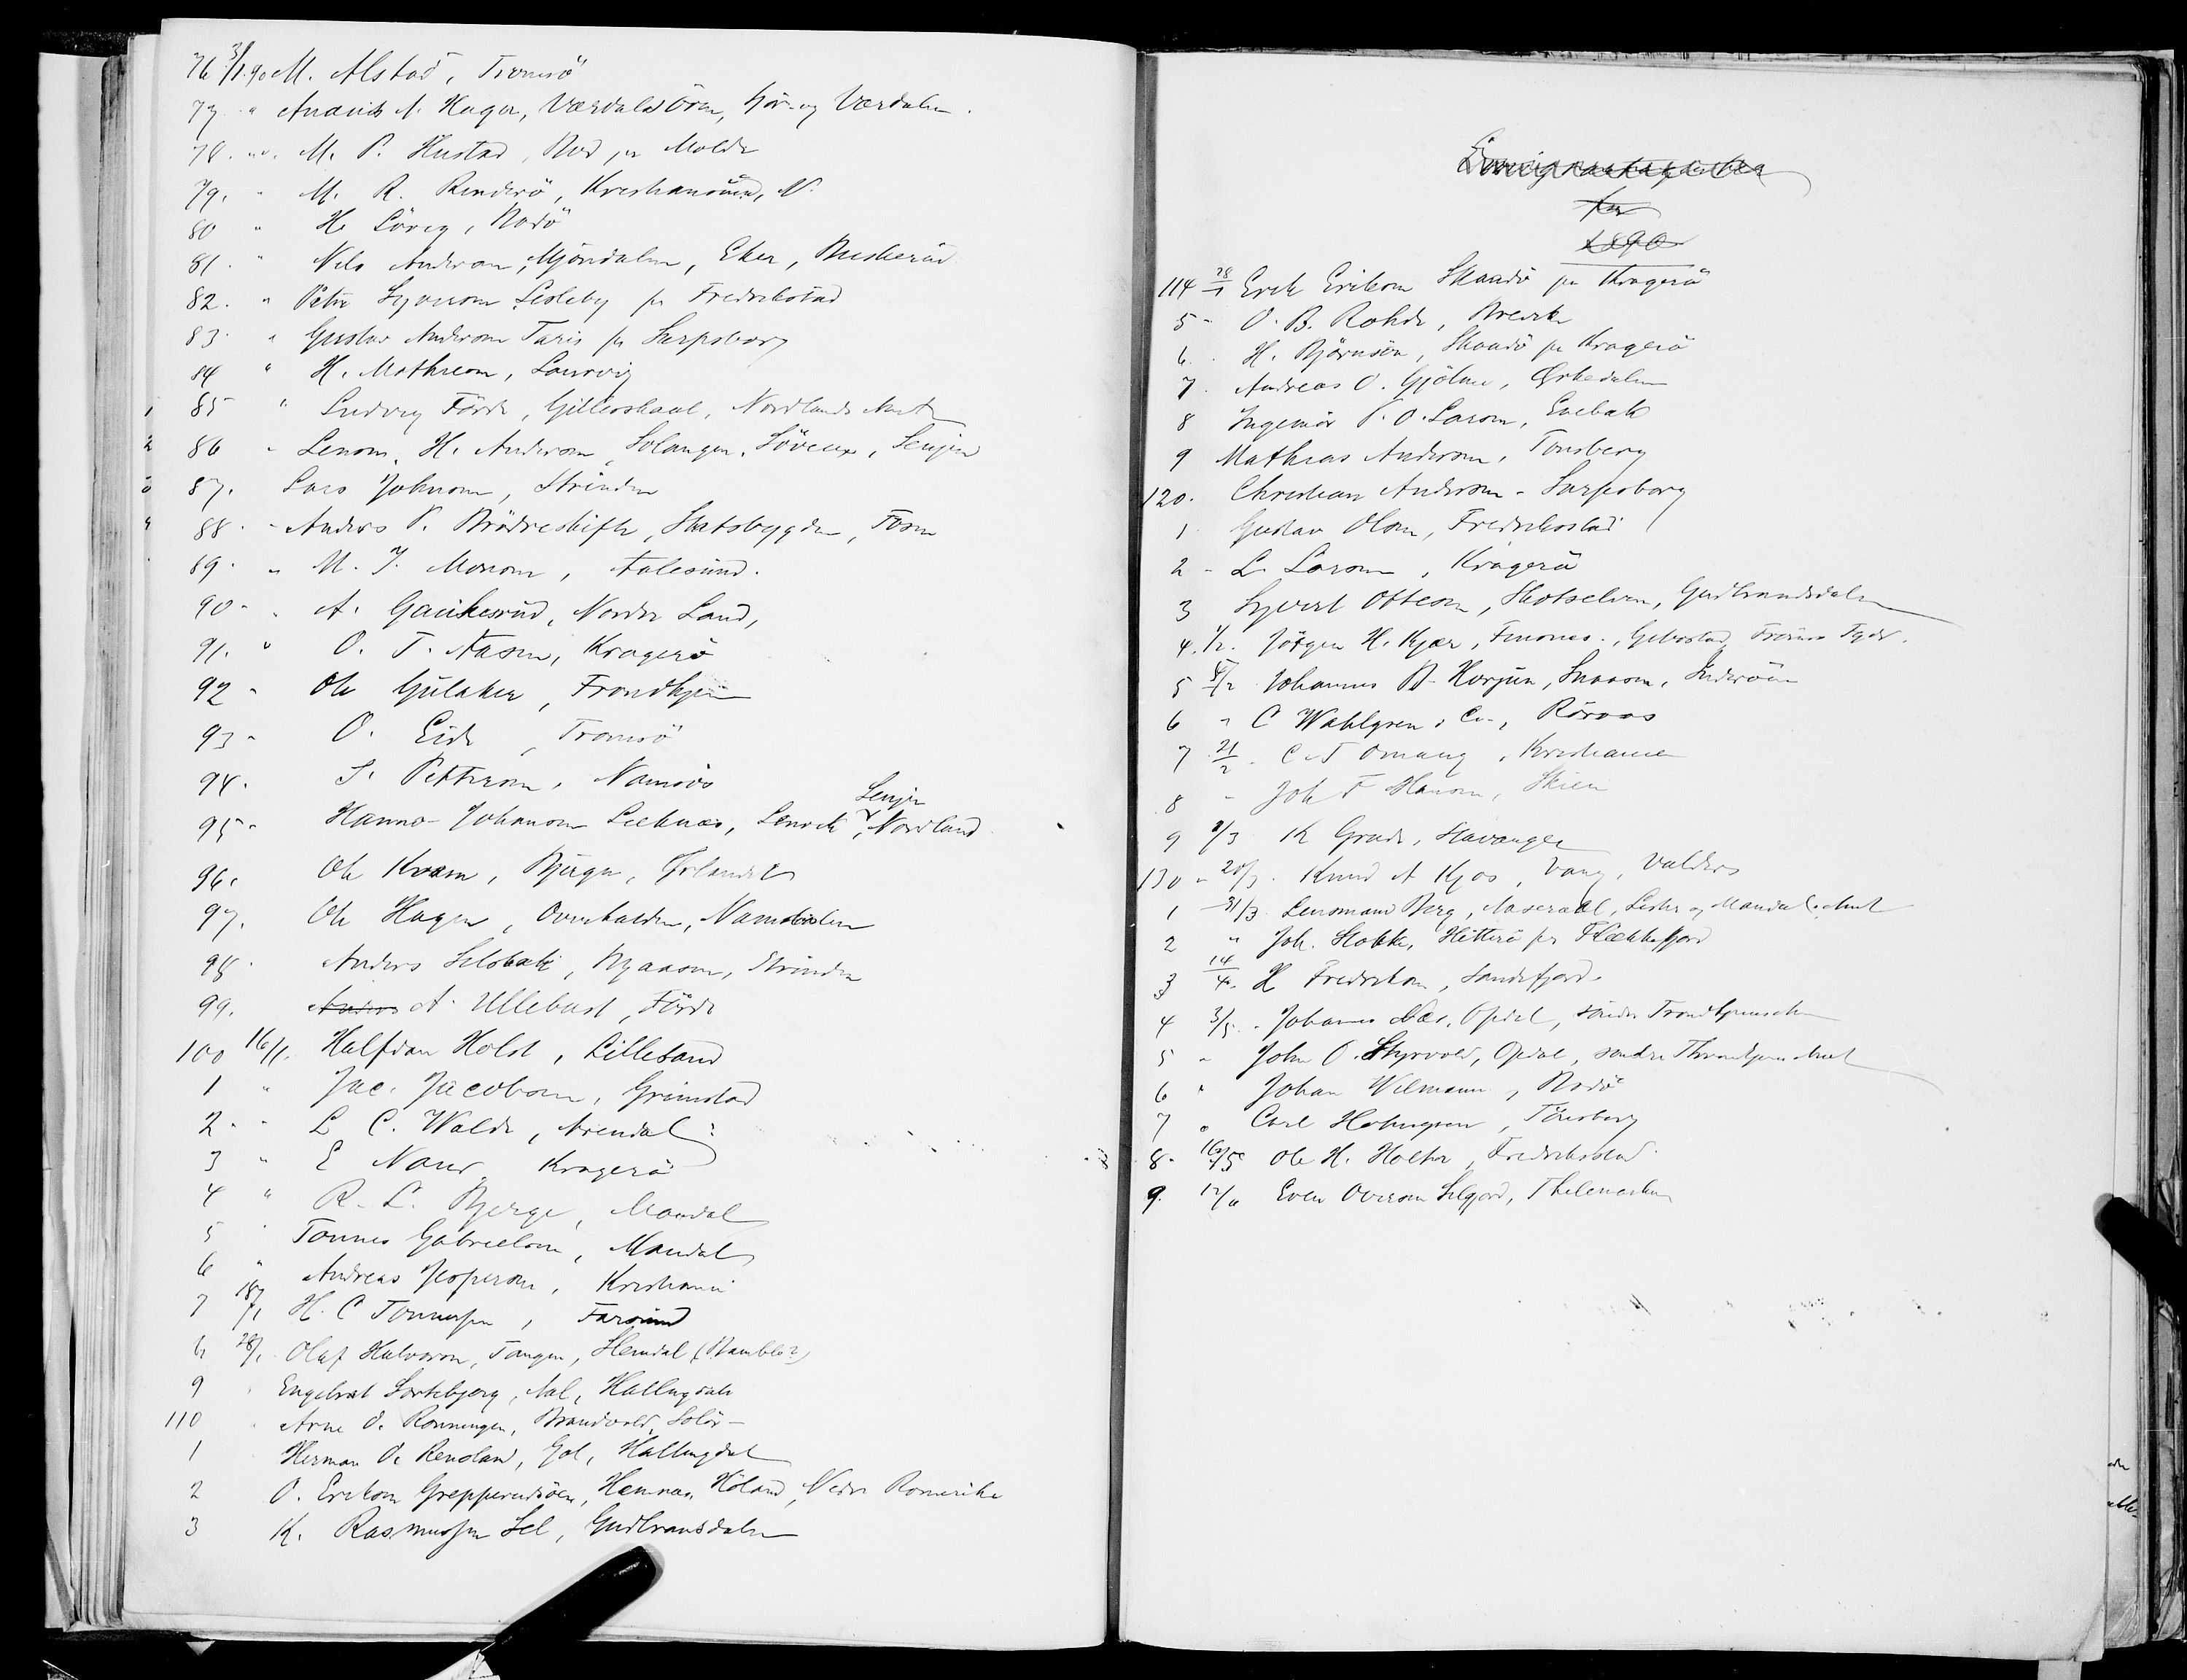 76 3/1 90 M. Alstad, Tromsö
77 " Anders N. Hagen, Værdalsören, Værdalen.
78. M. P. Hustad, Bud pr Molde
79. " M. R. Rendsö, Kristiansund, N.
80 " H. Lövig, Bodö
81. " Nils Anderson, Mjöndalen, Eker, Buskerud
82. " Peter Syverson Lisleby pr Fredrikstad
83. " Gustav Anderson Taris pr Sarpsborg
84 " H. Mathieson, Laurvig
1 85 " Ludvig Förde, Gilleskaal, Nordlands Amt
2 86 " Lensm. H. Anderson, Solangen, Senjen
3 87. Lars Johnson, Strinden
4 88. " Anders P. Brödreskift, Statsbygden, Fosen
89. " M. J. Monson, Aalesund.
90 " A. Gaukerud, Nordre Land,
91. " O. T. Aasen, Kragerö
92 " Ole Gulaker, Trondhjem
93 " O. Eide, Tromsö
94. S. Petterson, Namsos
Senjen
95 " Hanno Johanson Leeknæs, Lenvik, Nordland
96. Ole Kvam, Bjugn, Ørlandet
97. Ole Hagen, Overhalden, Namdalen
98. Anders Selsbak, Nyaasen, Strinden
99. Anders A. Ullebust, Förde
100 16/1. Halfdan Holst, Lillesand
1 " Jac. Jacobson, Grimstad
2. " L C. Walde, Arendal
3 " E Nars, Kragerö
4 " R. L. Bjerge, Mandal
5 " Tonnes Gabrielson, Mandal
6 " Andreas Jesperson, Kristiania
7 18/1 H. C Tonnessen, Farsund
8 28/1. Olaf Halvorson, Tangen, Skeudal (Bamble?)
9 " Engebret Sortebjerg, Aal, Hallingdal
110 " Arne O. Ronningen, Brandvold, Solör
1 Herman O. Renoland, Gol, Hallingdal
2 O. Erikson Grepperudsöen, Hemnæs, Höland, Nedre Romerike
3 K. Rasmussen Sel, Gudbransdalen
Emigrantagenter
for
1890
114 28/1 Erik Erikson Skaadö pr Kragerö
5 " O. B. Rohde, Brevik
6. H. Björnsön, Skaadö pr Kragerö
7. Andreas O. Gjölme, Ørkedalen
8 Ingeniör P. O. Larson, Enebak
9 Mathias Anderson, Tonsberg
120. Christian Anderson - Sarpsborg
1 Gustav Olson, Fredrikstad
2 - L. Larson, Kragerö
3 Syvert Otteson, Skotselven, Gudbrandsdalen
4. 1/2. Jörgen H. Kjær, Finsnes, Gibostad Tromsö
5 5/2 Johannes B. Horjun, Snaasen, Inderöen
6 " C Wahlgren & Co., Röraas
7 21/2. C. A Omang, Kristiania
8 " Joh F Hanson, Skien
9 8/3 K Grude, Stavanger
130 " 20/3. Knud A Kjos, Vang, Valders
1 31/3 Lensmand Berg, Aaseral, Lister og Mandals Amt
2 " Joh. Stokke, Hitterö pr Flekkefjord
3 14/4. H Fredrikson, Sandefjord.
4 3/5. Johannes Næs, Opdal, söndre Trondhjemske
5 " John O. Skyrvold, Opdal, sondre Throndhjems Amt
6 " Johan Welmann, Bodö
7 " Carl Holmgren, Tönsberg
8. 16/5 Ole H. Holter, Fredrikstad.
9. 12/6 Even Overson Selgjord, Thelemarken